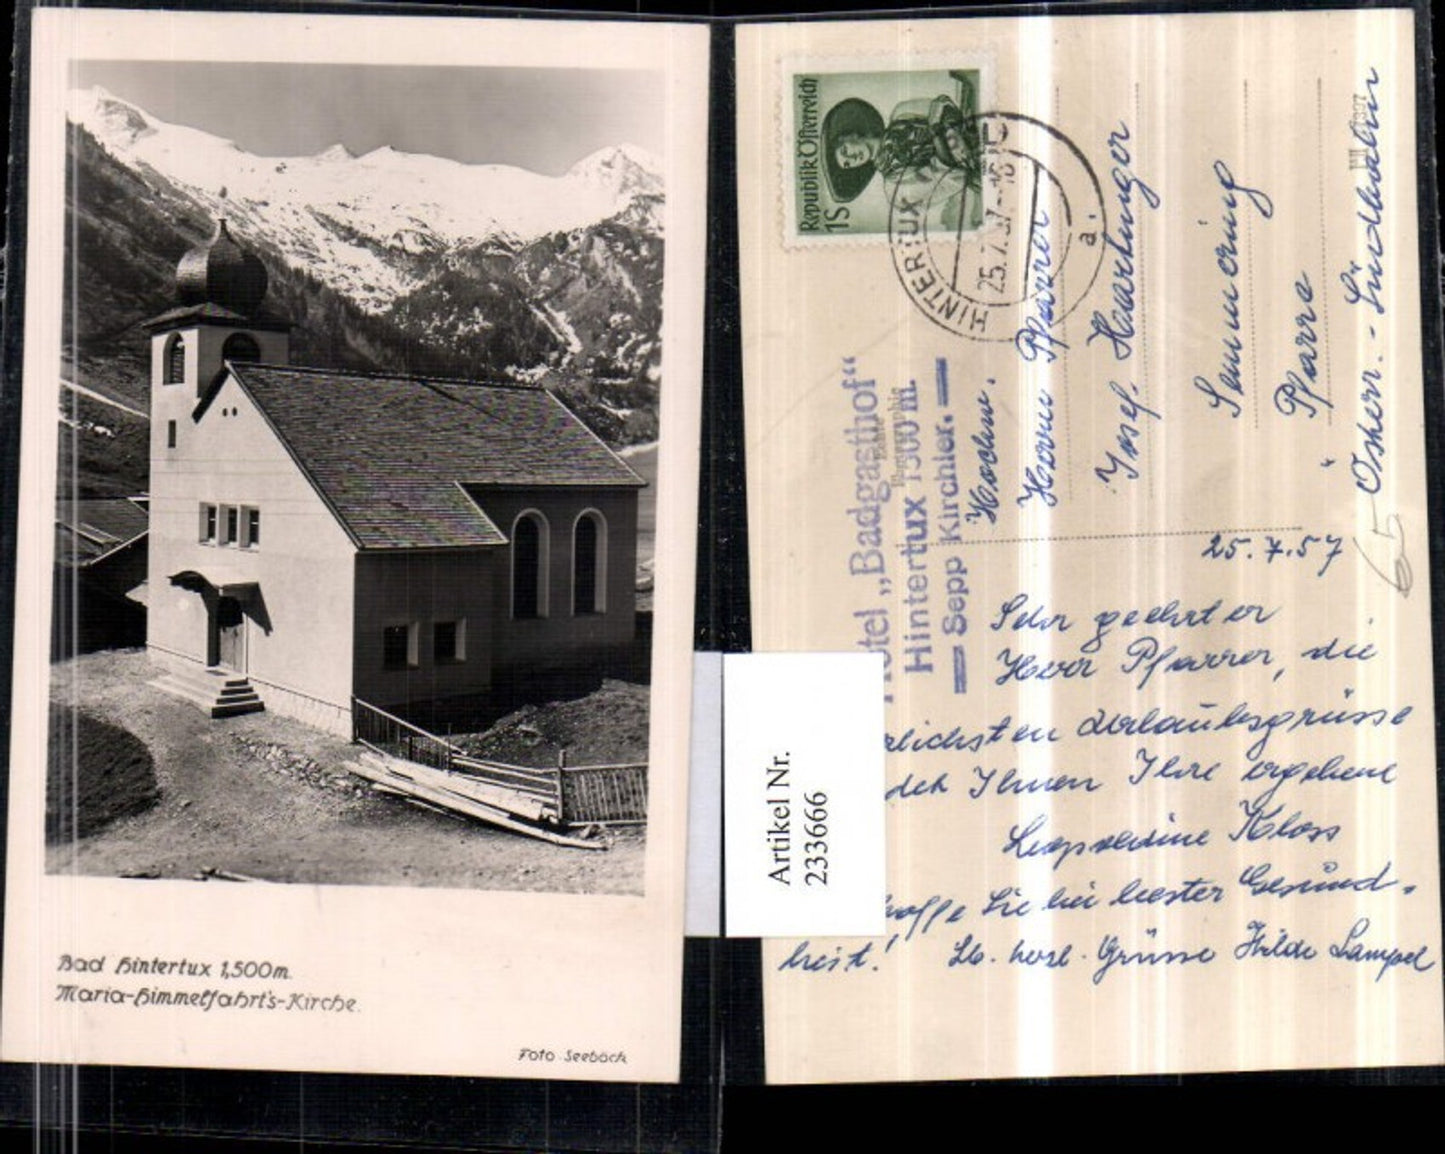 Bad Hintertux 1,500m.
Maria-Himmelfahrt's-Kirche.
Foto Seeböck
Republik Österreich
1S
HINTERTUX
25.7.57-16
a
Hotel „Badgasthof“
Hintertux 1500 m.
Sepp Kirchler.
Hochw.
Herrn Pfarrer
Josef Haarhinger
Semmering
Pfarre
Österr. - Südbahn
65
25.7.57
Sehr geehrter
Herr Pfarrer, die
Urlaubsgrüsse
Ihnen Ihre ergebene
Leopoldine Kloss
hoffe Sie bei bester Gesund-
heit! Lb. herzl. Grüsse Hilde Lampel
Artikel Nr.
233666